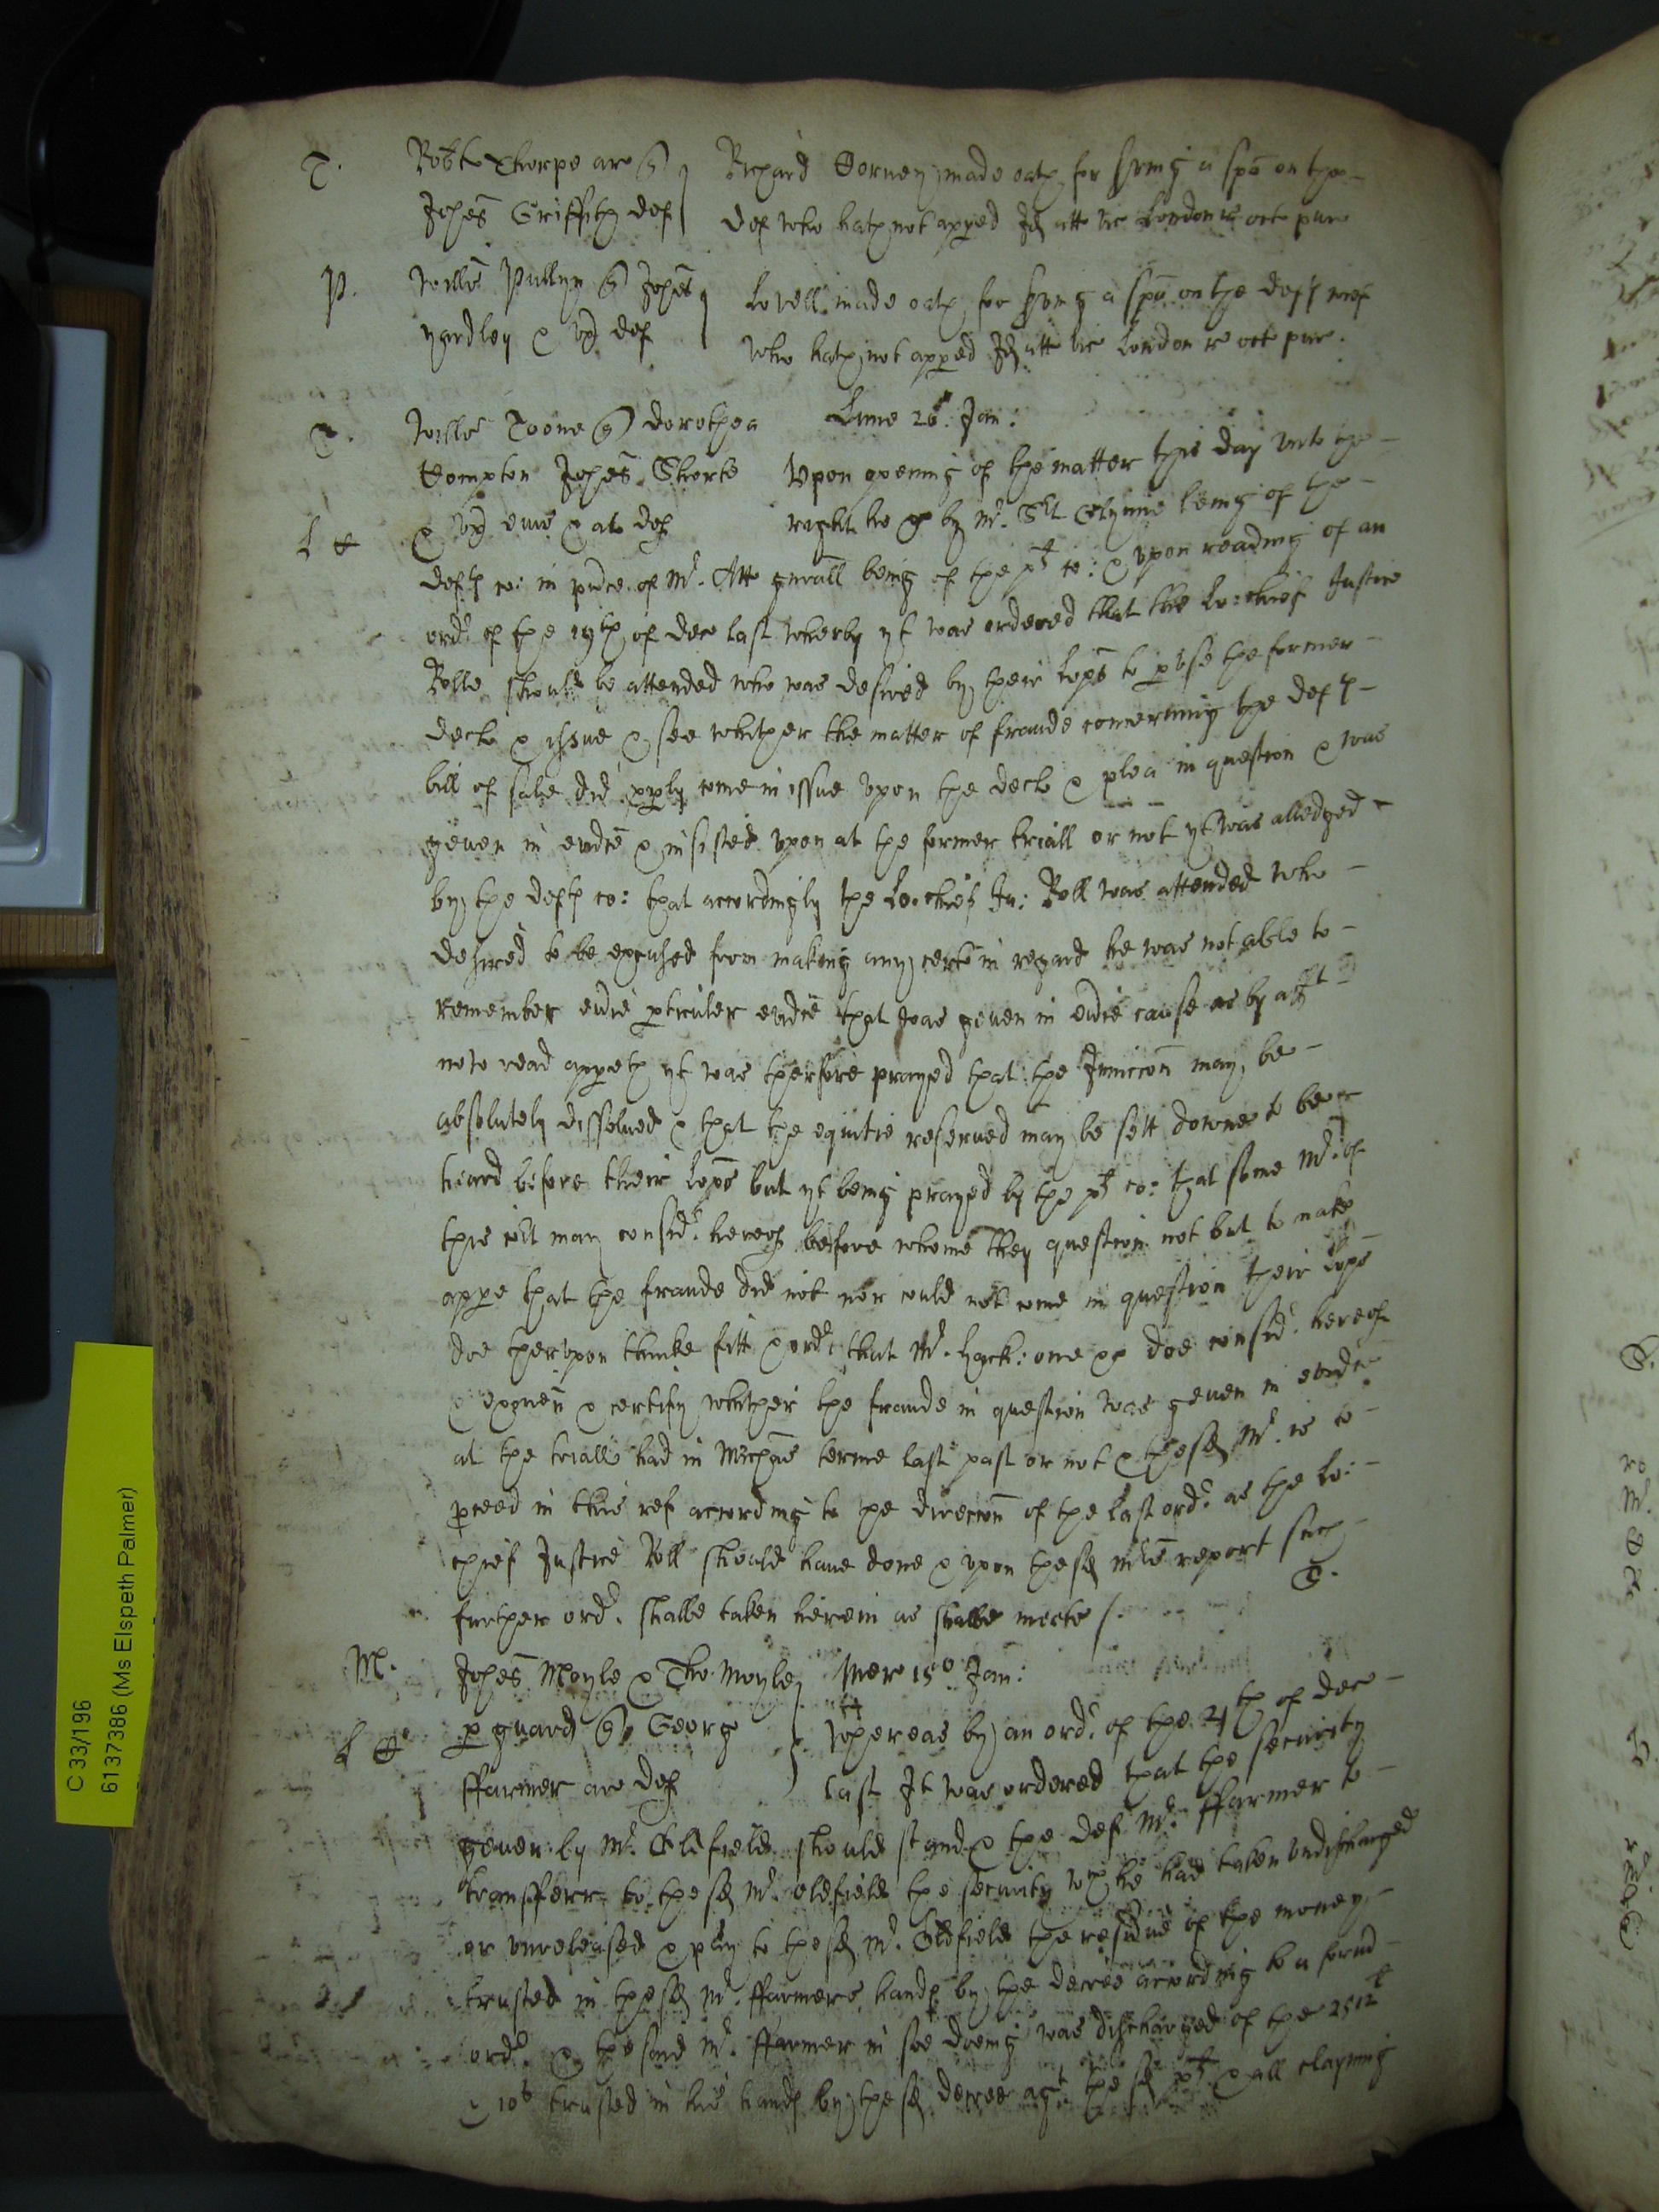 T. Robte Thorpe ar q
Johes Griffith def
Richard Dorney made oath for s'ving a spa on the
def who hath not appeed Id att vic London r oct pur
P. Willm Pullyn q Johes
yardley & ux def
Lovell made oath for s'ving a spa on the defts
who hath not appeed Id att vic London r oct pur.
T. Willm Toone q Dorothea
Compton Johes Shorte
& ux eius & al defs
Lune 26 Jan:
Upon opening of the matter this day unto the
right ho by Mr. Glynne being of the
defts co: in pñce of Mr. Atto gñrall being of the plts co: & upon reading of an
ordr of the 19th of Dec last wherby yt was ordered that the Lo: chief Justice
Rolle should be attended who was desired by their Lopps to p'use the former
decl & issue & see whither the matter of fraude concerning the defts
bill of sale did pply come in issue upon the decl & plea in question & was
geven in evidce & insisted upon at the former triall or not yt was alledged
by the defts co: that accordingly the Lo. chief Ju: Roll was attended who
desired to be excused from making any certe in regard he was not able to
remember evie pticuler evidce that was geven in evie cause as by afft
now read appeth yt was therfore prayed that the Iniuccon may be
absolutely dissolved & that the equitie reserved may be sett downe to be
heard before their Lopps but yt being prayed by the plts co: that some Mr. of
this cort may considr. hereof before whome they question not but to make
appe that the fraude did not nor could not come in question their Lopps
doe therupon thinke fitt & ordr that Mr. Hack: one &c doe considr. hereof
& exmen & certify whither the fraude in question was geven in evidce
at the triall had in Michas terme last past or not & the sd Mr. is to
pceed in this ref according to the direccon of the last ordr. as the Lo:
chief Justice Roll should have done & upon the sd Mrs report such
further ordr. shalbe taken herein as shalbe meete /.
M. Johes Moyle & Tho Moyle
p guard q Georg
ffarmer ar def
Mer 15o Jan:
Whereas by an ordr. of the 21th of Dec
last It was ordered that the security
geven by Mr. Oldfield should stand & the def Mr. ffarmer to
transferr to the sd Mr. Oldfield the security wch he had taken undischarged
or unreleased & pay to the sd Mr. Oldfield the residue of the money
trusted in the sd Mr. ffarmers hands by the decree according to a former
ordr. & the said Mr. ffarmer in soe doeing was discharged of the 2512l
10s trusted in his hands by the sd decree agt the sd plts & all clayming
C 33/196
6137386 (Ms Elspeth Palmer)